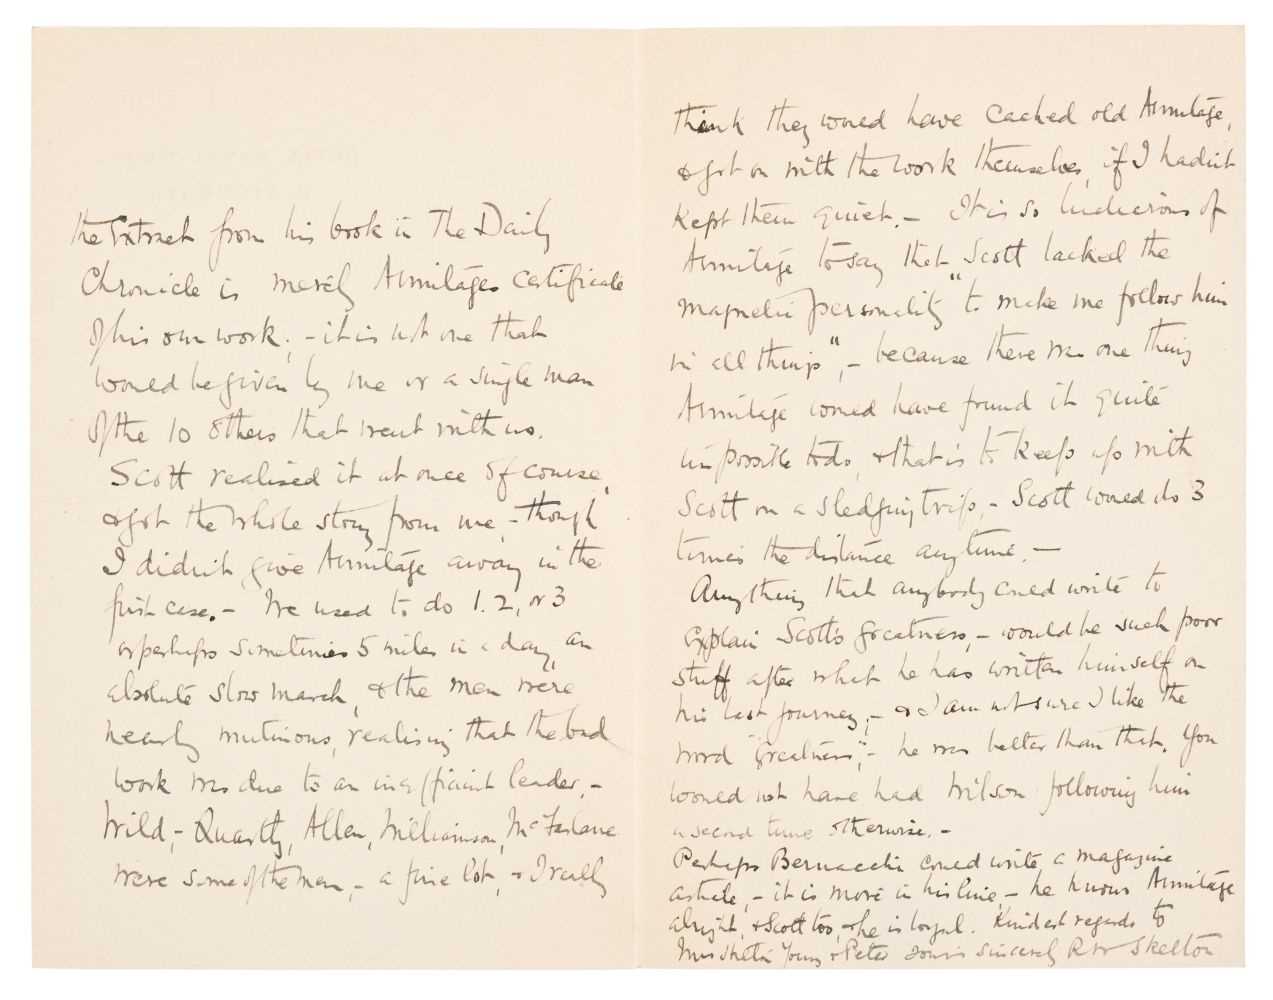 the Extract from his book in The Daily
Chronicle is merely Armitages certificate
of his own work, - it is not one that
would be given by me or a single man
of the 10 others that went with us.
Scott realised it at once of course,
& got the whole story from me, - though
I didn't give Armitage away in the
first case. - We used to do 1. 2, or 3
or perhaps sometimes 5 miles in a day, an
absolute slow march, & the men were
nearly mutinous, realising that the bad
work was due to an inefficient leader, -
Wild, - Quartly, Allen, Williamson, McFarlane
were some of the men, - a fine lot, - I really
think they would have cached old Armitage,
& got on with the work themselves, if I hadn't
kept them quiet. - It is so ludicrous of
Armitage to say that Scott lacked the
magnetic personality "to make me follow him
in all things", - because there was one thing
Armitage would have found it quite
impossible to do, & that is to keep up with
Scott on a sledging trip, - Scott would do 3
times the distance anytime. -
Anything that anybody could write to
explain Scott's greatness, - would be such poor
stuff after what he has written himself on
his last journey, - & I am not sure I like the
word "Greatness", - he was better than that. You
would not have had Wilson following him
a second time otherwise. -
Perhaps Bernacchi could write a magazine
article, - it is more in his line, - he knows Armitage
alright, & Scott too, & he is loyal. Kindest regards to
Young & Peter Yours sincerely RW Skelton